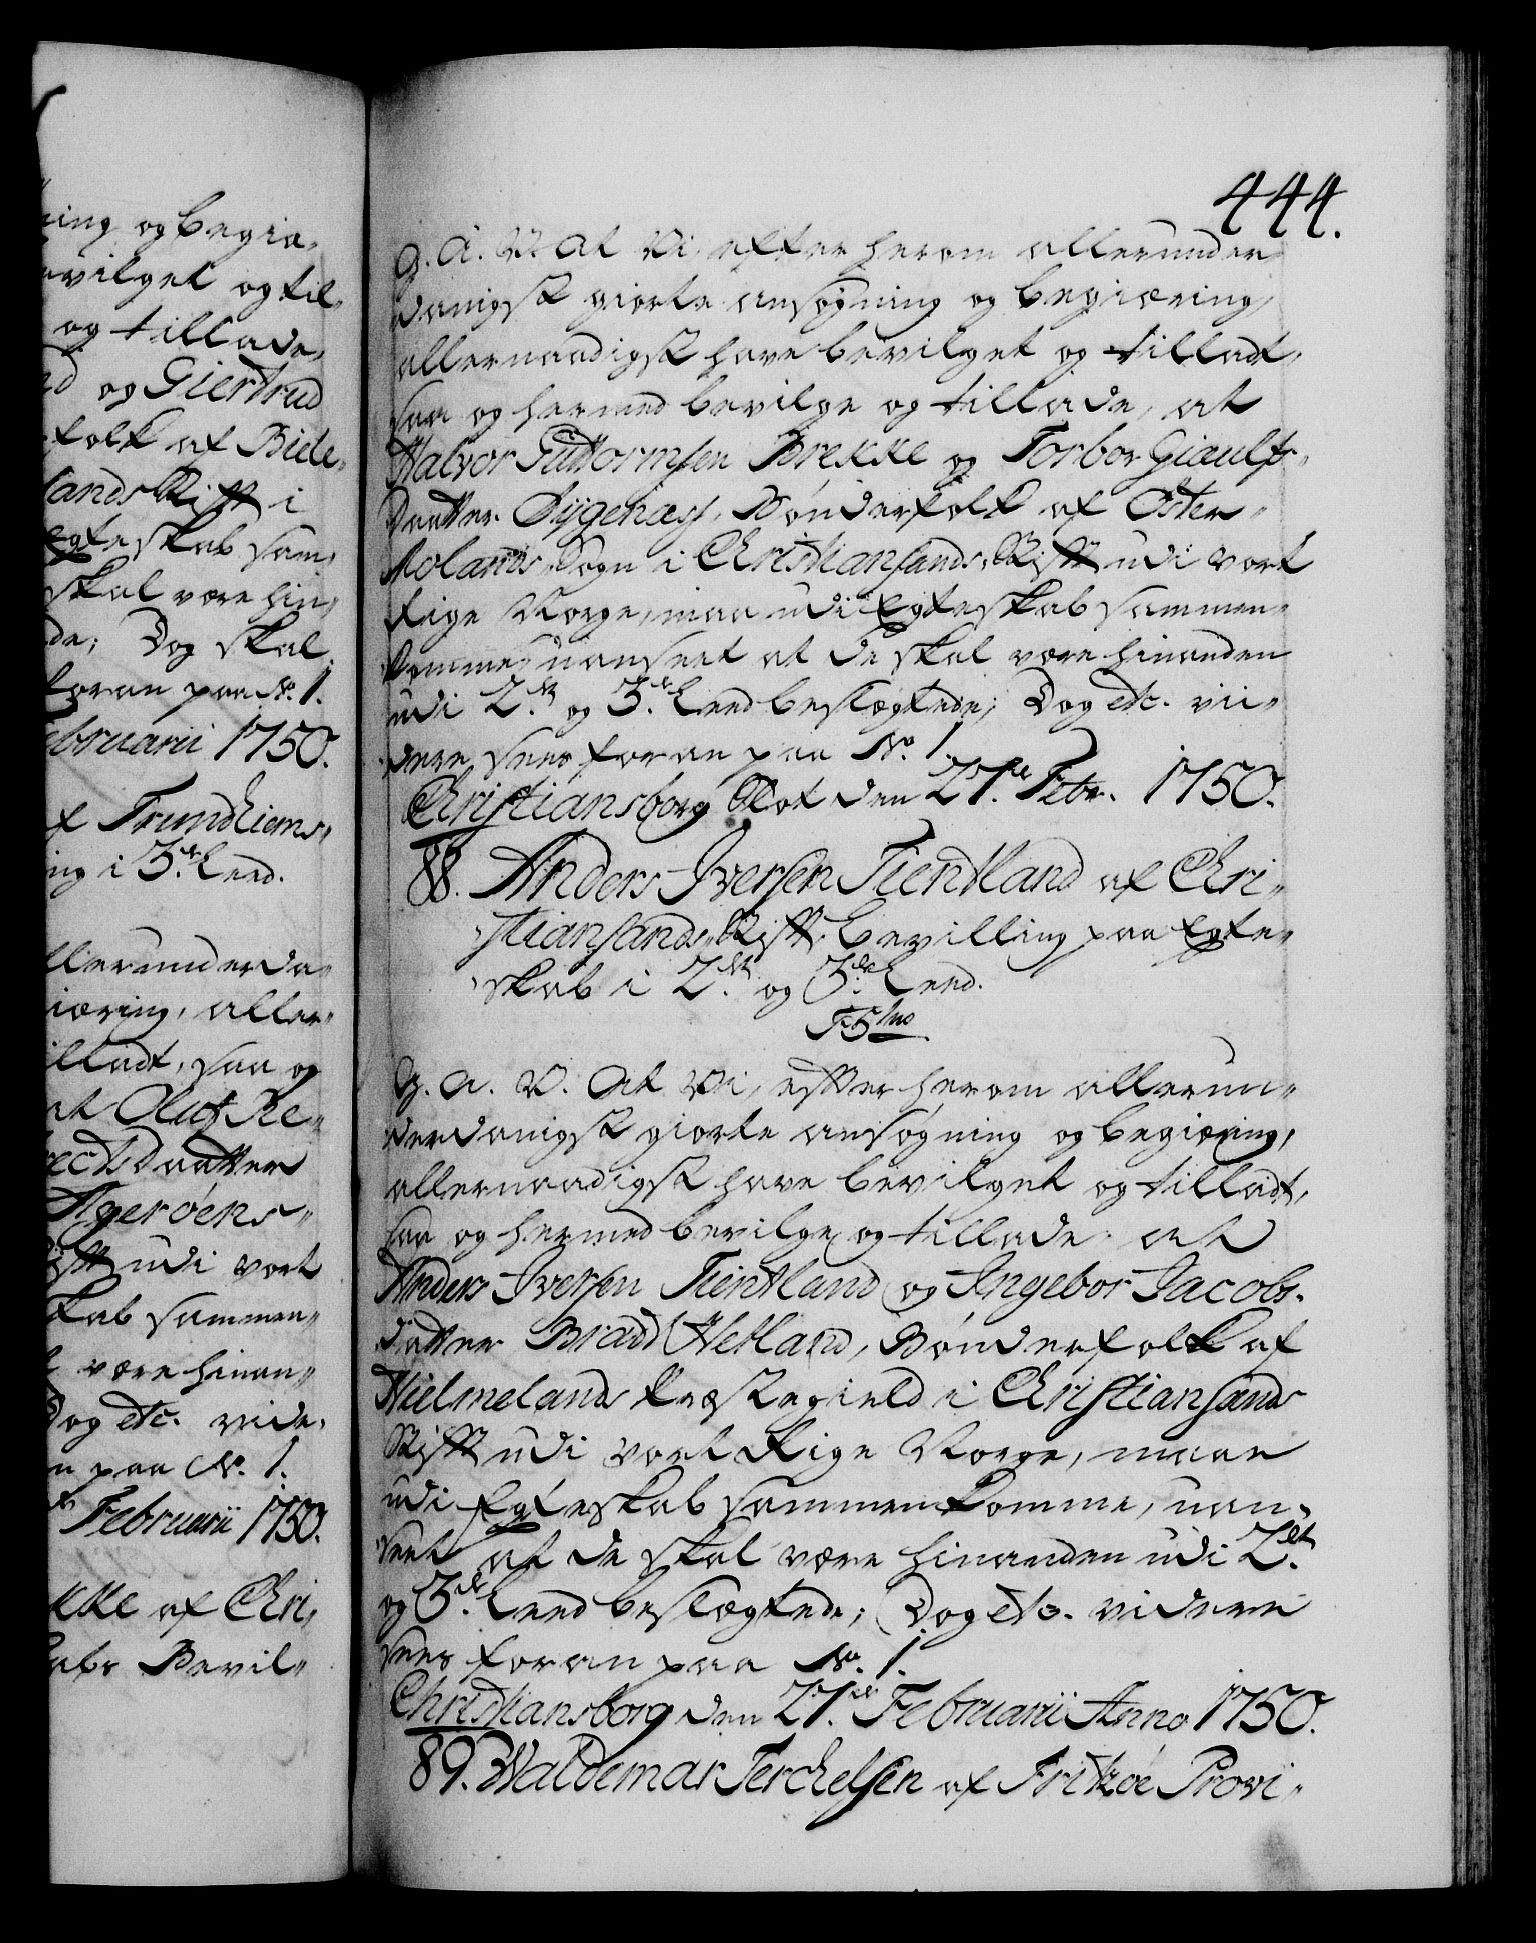 ning og begiæ„
bevilget og til„
og tillade,
nd og Giertrud
folk af Biele„
sands Stift i
Egteskab sam„
skal være hin„
de; Dog skal
foran paa No. 1.
Februarii 1750.
af Trundhiems„
ng i 3die Leed.
allerunderda„
giæring, aller„
tilladt, saa og
at Oluf Re„
rects daatter
Agerøens„
Stift udi vort
skab sammen„
l være hinan„
Dog etc. vide„
n paa No. 1.
Februarii 1750.
ekke af Chri„
kabs Bevil„
444.
G. A. V. At Vi, efter herom allerunder„
danigst giorte ansøgning og begiæring,
allernaadigst have bevilget og tilladt,
saa og hermed bevilge og tillade, at
Halvor Guttormsen Brekke og Torbor Giaulfs„
daatter Sygenæs, Bønderfolk af Øster„
Molands Sogn i Christiansands Stift udi vort
Rige Norge, maa udi Egteskab sammen„
komme, uanseet at de skal være hinanden
udi 2det og 3die Leed beslægtede; Dog etc. vii„
dere sees foran paa No. 1.
Christiansborg Slot den 27de Febr. 1750.
88. Anders Iversen Tientland af Chri„
stiansands Stift, bevilling paa Egte„
skab i 2det og 3die Leed.
F 5to
G. A. V. At Vi, efter herom allerun„
derdanigst giorte ansøgning og begiæring,
allernaadigst have bevilget og tilladt,
saa og hermed bevilge og tillade, at
Anders Iversen Tientland og Ingebor Jacobs„
datter Bradd Hetland, Bønderfolk af
Hielmelands Præstegield i Christiansands
Stift udi vort Rige Norge, maae
udi Egteskab sammenkomme, uan„
seet at de skal være hinanden udi 2det
og 3die Leed beslægtede; Dog etc. videre
sees foran paa No. 1.
Christiansborg den 27de Februarii Anno 1750.
89. Waldemar Terchelsen af Fritzøe Provi„